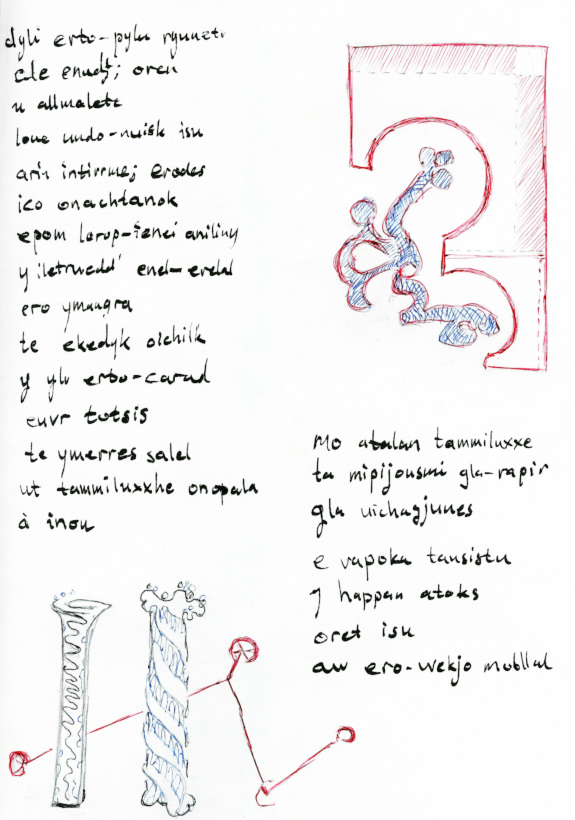 dyli erto-pylu
cle oren
u allmalete
loue undo-nuisk isu
erodes
ico onachtanok
epom aniliny
y end-erdal
ero ymaugra
te ekedyk olchilk
y ylu erto-carud
euvr totsis
te ymerres salel
ut tammiluxxhe onopala
à inou
Mo atalan tammiluxxe
ta mipijousmi gla-rapir
gla uichagjunes
e vapoka tausistu
j happan atoks
oret isu
aw ero-wekjo mobllal